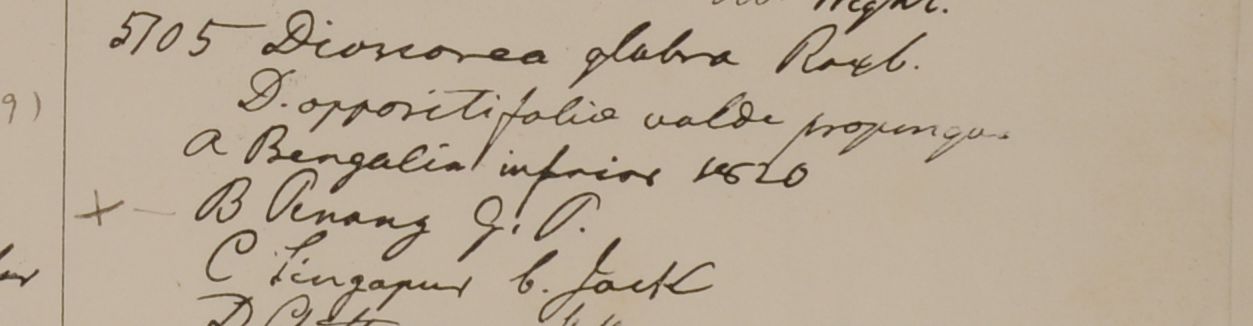 Wight.
5105 Dioscorea glabra Roxb.
9)
D. oppositifoliæ valde propinqua
A Bengalia inferior 1820
× — B Penang G. P.
C Singapur b. Jack
D